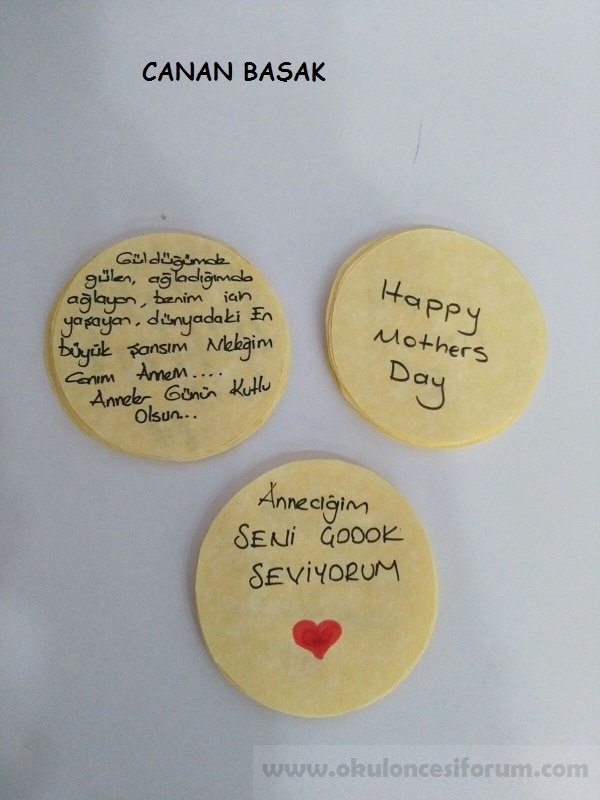 CANAN BASAK
Güldüğümde
gülen, ağladığımda
ağlayan, benim için
yaşayan, dünyadaki En
büyük şansım Meleğim
Canım Annem....
Anneler Günün Kutlu
Olsun...
Happy
Mothers
Day
Anneciğim
SENİ ÇOOOK
SEVİYORUM
www.okuloncesiforum.com